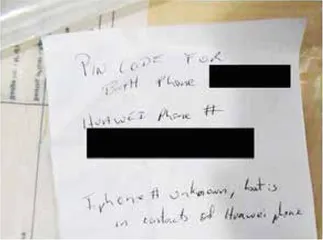 PIN CODE FOR
BOTH PHONE
HUAWEI Phone #
Iphone # unknown, but is
in contacts of Huawei phone